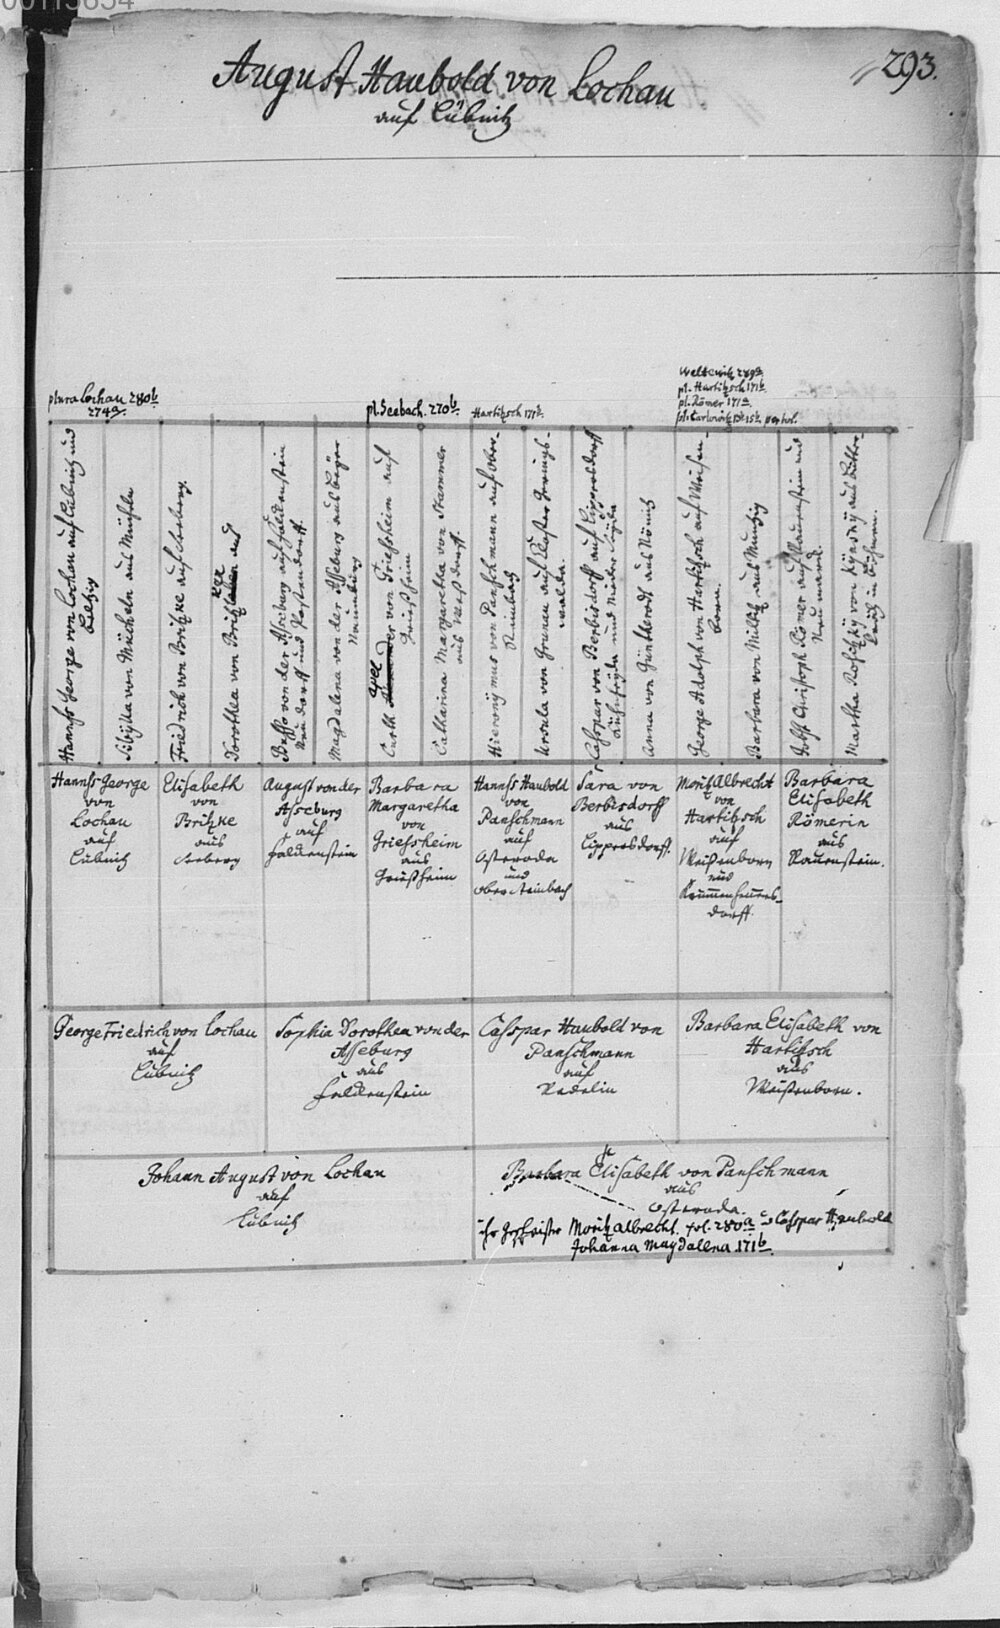 00115654
293.
August Haubold von Lochau
auf Lübnitz
plura Lochau 280b
274a.
pl. Seebach. 270b.
Hartitzsch 171b.
Weltewitz 289a
pl. Hartitzsch 171b.
pl. Römer 171a.
Hannß George von Lochau auf Lübnitz und
Beltzig
Sibÿlla von Mücheln aus Mücheln
Friedrich von Britzke auf
Dorothea von Britzke aus
Busso von der Asseburg auf Faldenstein
Neundorff und
Magdalena von der Asseburg aus
Naumburg
Curth von Griesheim auf
Griesheim
Catharina Margaretha von Stammer
aus
Hieronÿmus von Panschmann auf Ober-
Steinbach
Ursula von Grunau aus Closter
Caspar von Berbisdorff auf Lippersdorff
und Nieder
Anna von Günterodt aus
George Adolph von Hartitzsch auf Weisen-
born.
Barbara von Miltitz aus Muntzig
Christoph Römer auf Rauenstein und
Neumarck.
Martha
Hannß George
von
Lochau
auf
Lübnitz
Elisabeth
von
Britzke
aus
August von der
Asseburg
auf
Faldenstein
Barbara
Margaretha
von
Griesheim
aus
Griesheim
Hannß Haubold
von
Panschmann
auf
Osteroda
und
Ober Steinbach
Sara von
Berbisdorff
aus
Lippersdorff.
Moritz Albrecht
von
Hartitzsch
auf
Weißenborn
und
Barbara
Elisabeth
Römerin
aus
Rauenstein.
George Friedrich von Lochau
auf
Lübnitz
Sophia Dorothea von der
Asseburg
aus
Faldenstein
Casspar Haubold von
Panschmann
auf
Redelin
Barbara Elisabeth von
Hartitzsch
aus
Weißenborn.
Johann August von Lochau
auf
Lübnitz
Barbara Elisabeth von Panschmann
aus
Osteroda.
ihr Geschwister Moritz Albrecht. fol. 280a u Casspar Haubold
Johanna Magdalena 171b.